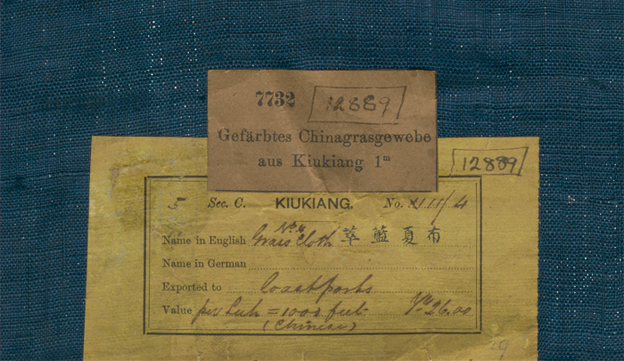 7732 12889
Gefärbtes Chinagrasgewebe
aus Kiukiang 1m
12889
5 Sec. C. KIUKIANG. No.
Name in English Grass Cloth 萃藍夏布
Name in German
Exported to Coast ports
Value per = 1000 feet 26.00
(Chinese)